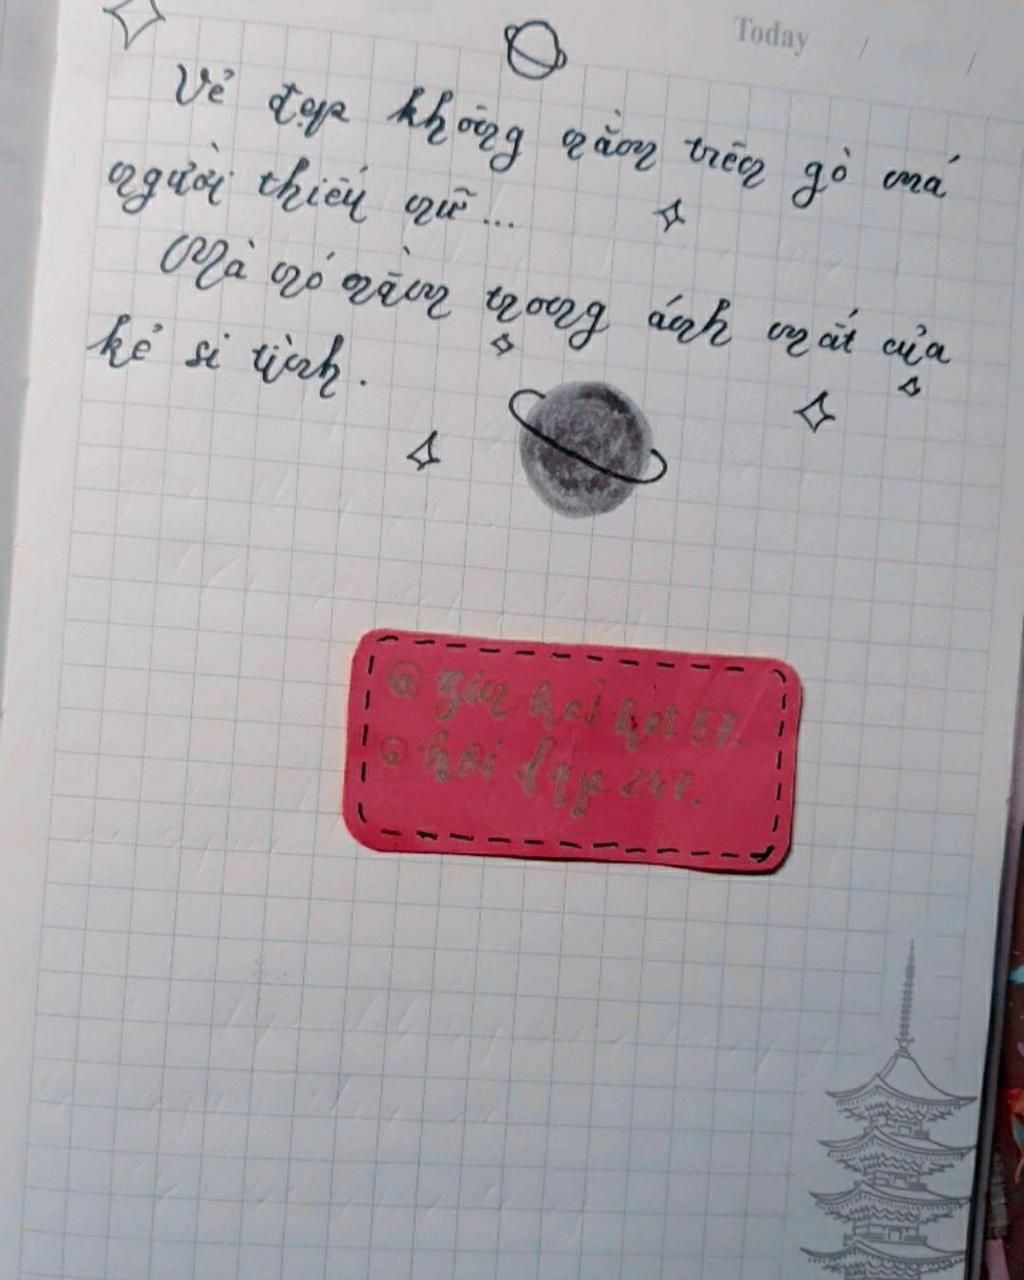 Today / /
Vẻ đẹp không nằm trên gò má
người thiếu nữ...
Mà nó nằm trong ánh mắt của
kẻ si tình.
hơi đẹp